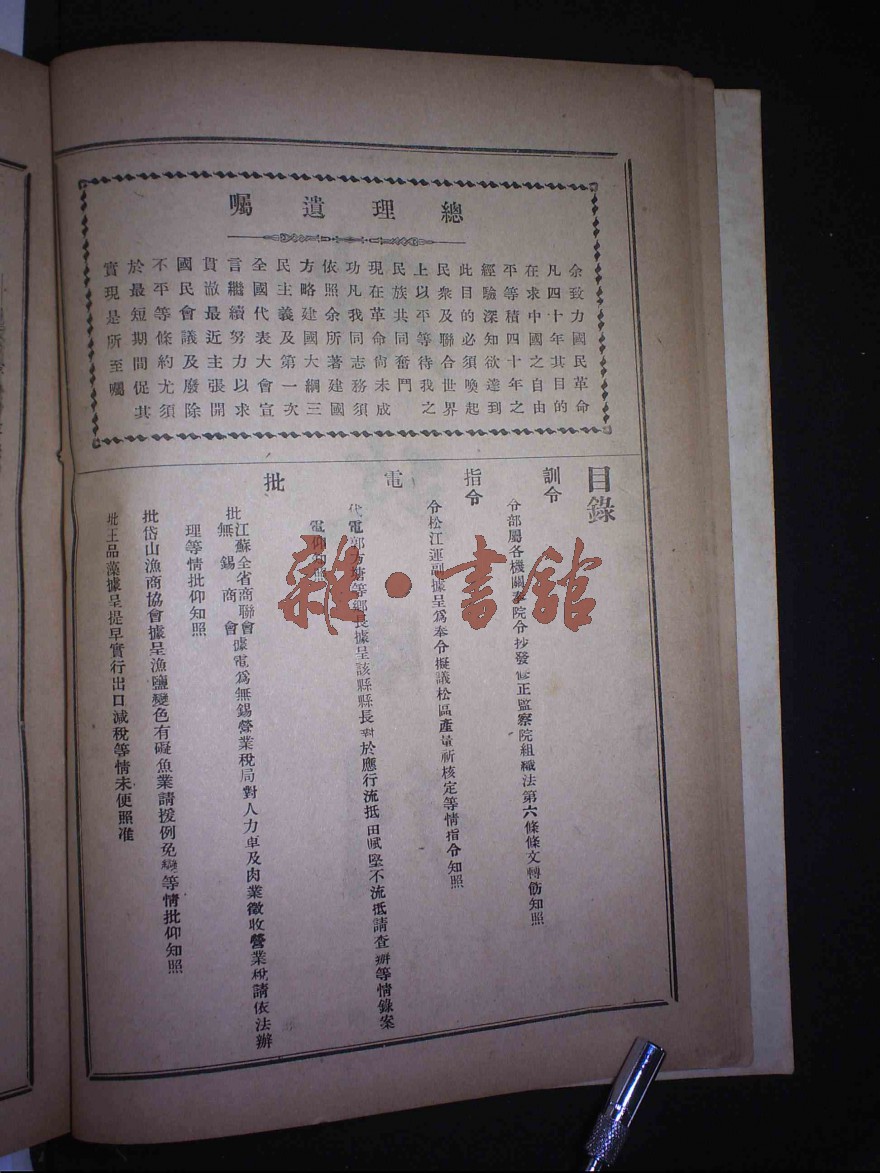 總理遺囑
余致力國民革命
凡四十年其目的
在求中國之自由
平等積四十年之
經驗深知欲達到
此目的必須喚起
民衆及聯合世界
上以平等待我之
民族共同奮鬥
現在革命尙未成
功凡我同志務須
依照余所著建國
方略建國大綱三
民主義及第一次
全國代表大會宣
言繼續努力以求
貫澈最近主張開
國民會議及廢除
不平等條約尤須
於最短期間促其
實現是所至囑
目錄
訓令
令部屬各機關奉院令抄發修正監察院組織法第六條條文轉飭知照
指令
令松江運副據呈爲奉令擬議松區產量祈核定等情指令知照
電
代電郭方塘等鄉長據呈該縣縣長對於應行流抵田賦堅不流抵請查辦等情錄案
電仰知照
批
批江蘇全省商聯會無錫商會據電爲無錫營業稅局對人力車及肉業徵收營業稅請依法辦
理等情批仰知照
批岱山漁商協會據呈漁鹽變色有礙魚業請援例免變等情批仰知照
批王品藻據呈提早實行出口減稅等情未便照准
雜·書館